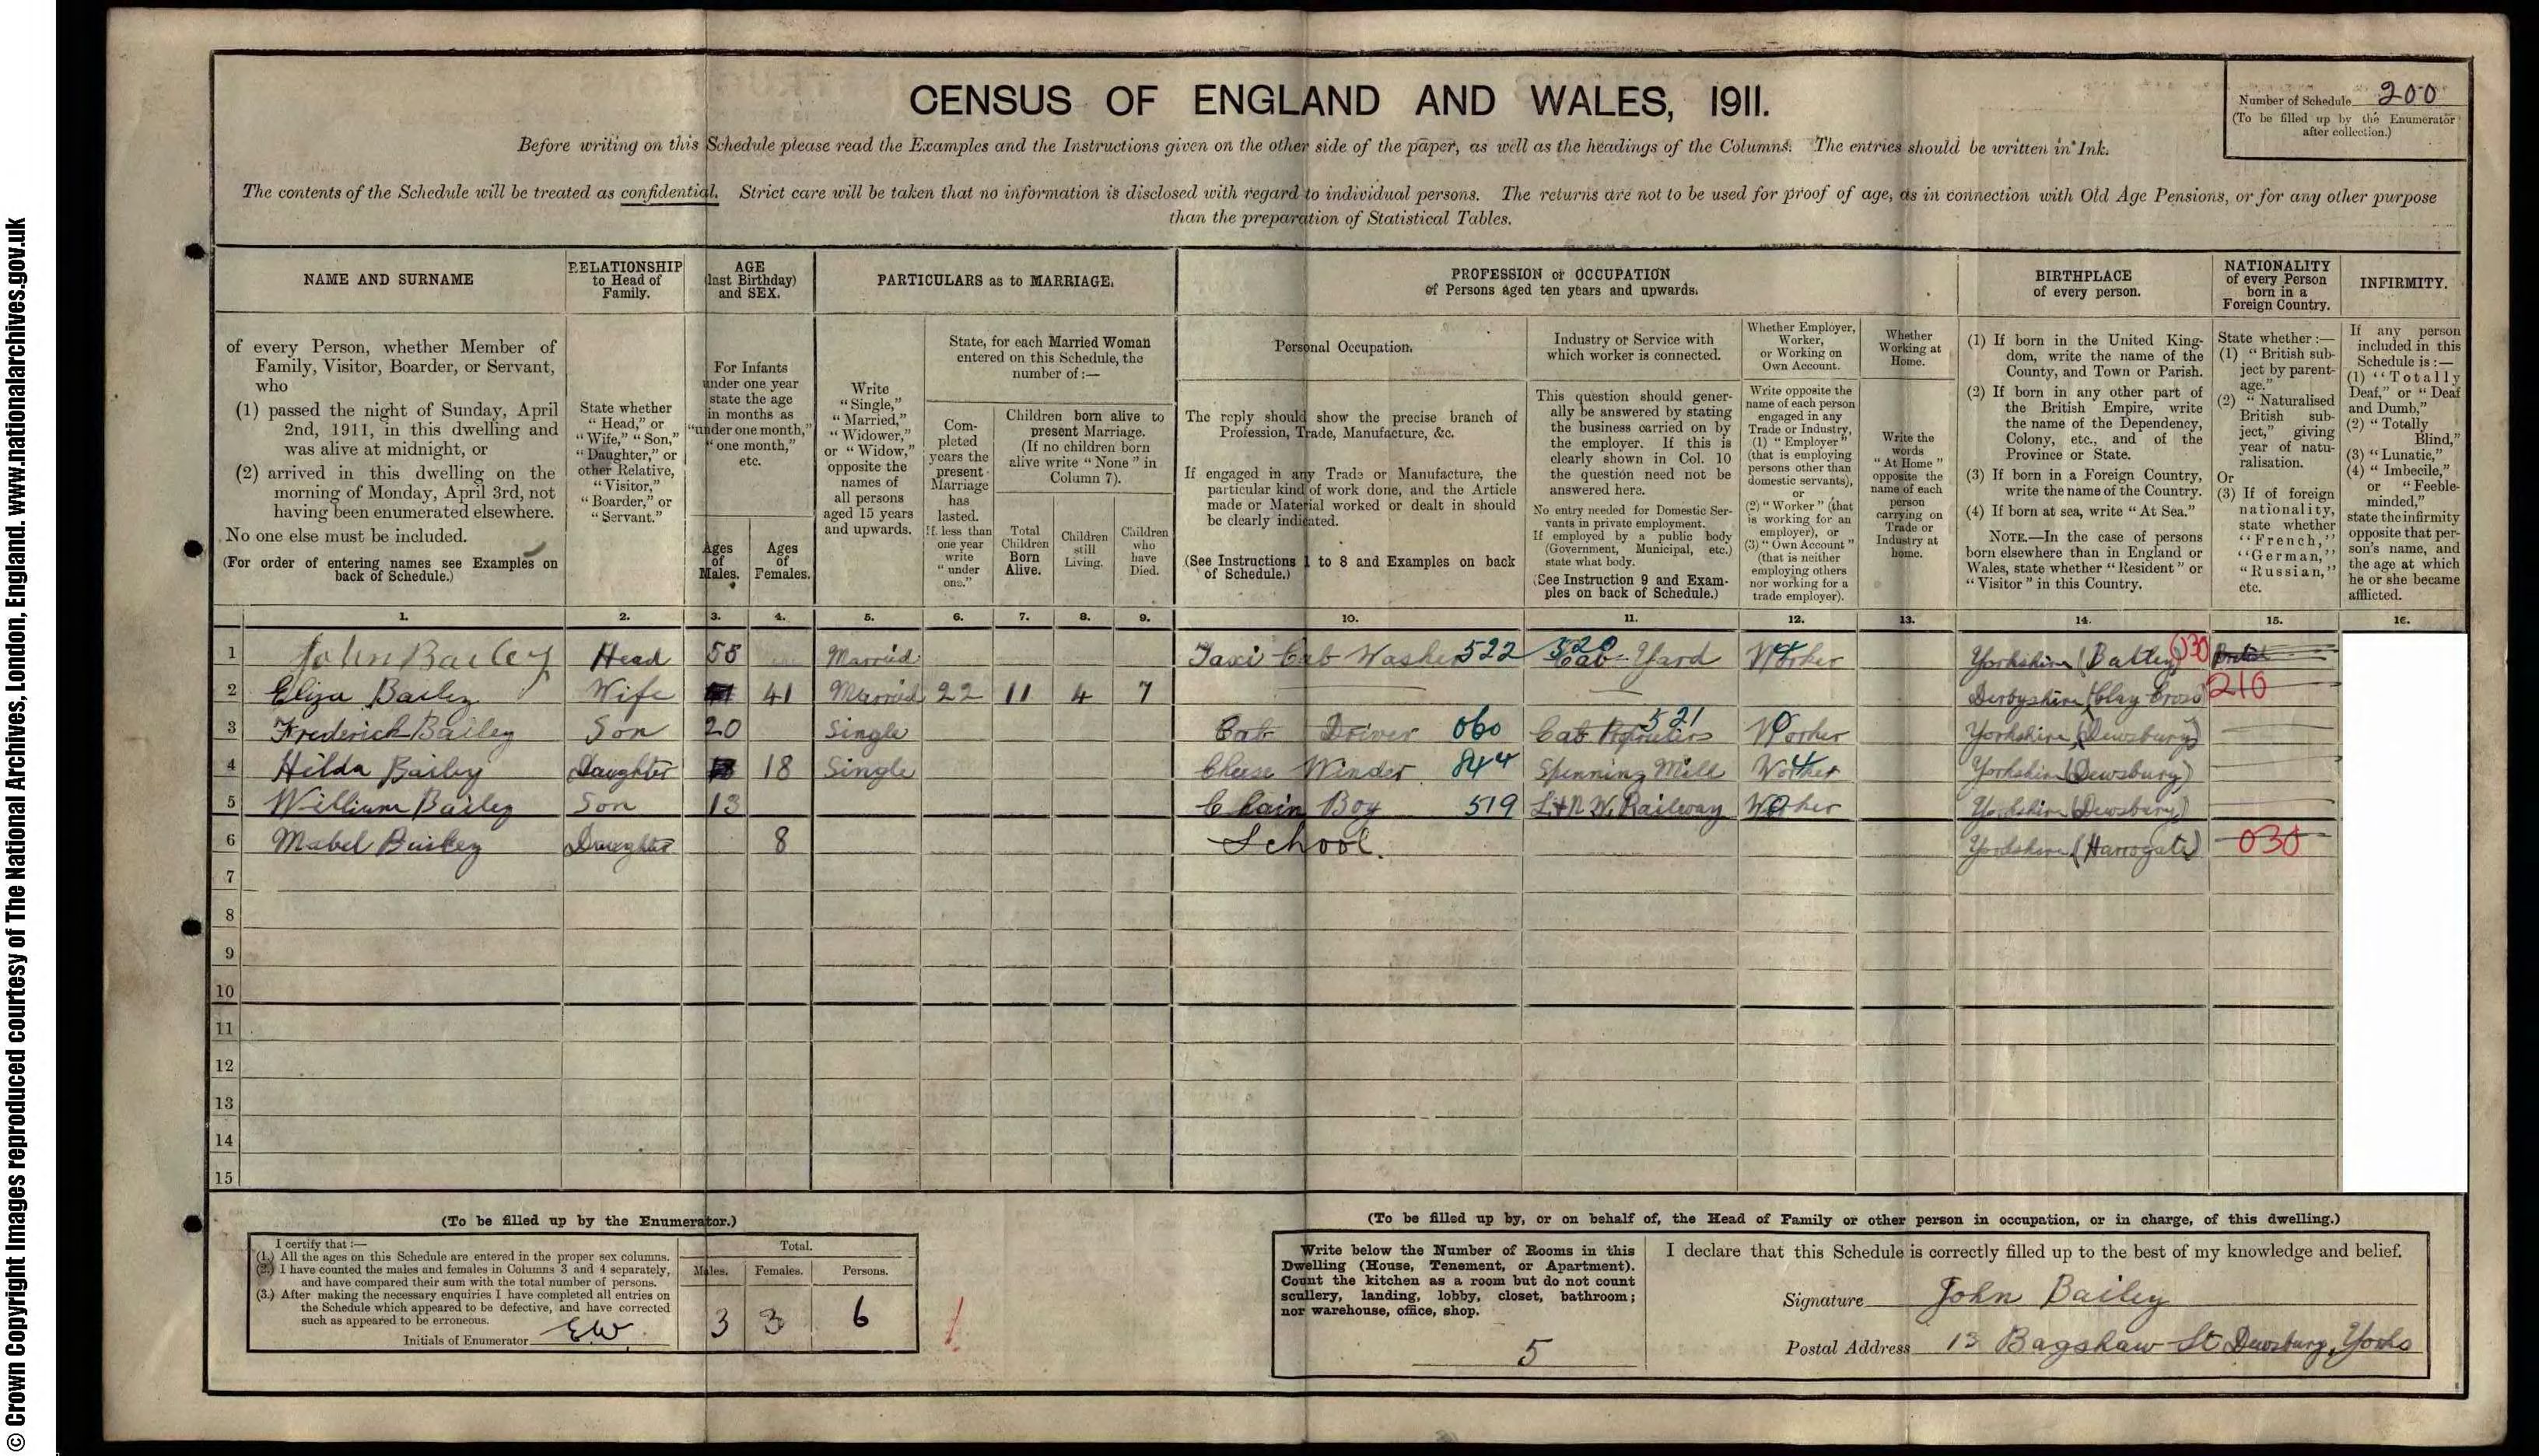 CENSUS OF ENGLAND AND WALES, 1911.
Number of Schedule 200
(To be filled up by the Enumerator after collection.)
Before writing on this Schedule please read the Examples and the Instructions given on the other side of the paper, as well as the headings of the Columns. The entries should be written in Ink.
The contents of the Schedule will be treated as confidential. Strict care will be taken that no information is disclosed with regard to individual persons. The returns are not to be used for proof of age, as in connection with Old Age Pensions, or for any other purpose
than the preparation of Statistical Tables.
NAME AND SURNAME
of every Person, whether Member of
Family, Visitor, Boarder, or Servant,
who
(1) passed the night of Sunday, April
2nd, 1911, in this dwelling and
was alive at midnight, or
(2) arrived in this dwelling on the
morning of Monday, April 3rd, not
having been enumerated elsewhere.
No one else must be included.
(For order of entering names see Examples on
back of Schedule.)
RELATIONSHIP
to Head of
Family.
State whether
"Head," or
"Wife," "Son,"
"Daughter," or
other Relative,
"Visitor,"
"Boarder," or
"Servant."
AGE
(last Birthday)
and SEX.
For Infants
under one year
state the age
in months as
"under one month,"
"one month,"
etc.
Ages
of
Males.
Ages
of
Females.
PARTICULARS as to MARRIAGE.
Write
"Single,"
"Married,"
"Widower,"
or "Widow,"
opposite the
names of
all persons
aged 15 years
and upwards.
State, for each Married Woman
entered on this Schedule, the
number of :—
Com-
pleted
years the
present
Marriage
has
lasted.
If less than
one year
write
"under
one."
Children born alive to
present Marriage.
(If no children born
alive write "None" in
Column 7).
Total
Children
Born
Alive.
Children
still
Living.
Children
who
have
Died.
PROFESSION or OCCUPATION
of Persons aged ten years and upwards.
Personal Occupation.
The reply should show the precise branch of
Profession, Trade, Manufacture, &c.
If engaged in any Trade or Manufacture, the
particular kind of work done, and the Article
made or Material worked or dealt in should
be clearly indicated.
(See Instructions 1 to 8 and Examples on back
of Schedule.)
Industry or Service with
which worker is connected.
This question should gener-
ally be answered by stating
the business carried on by
the employer. If this is
clearly shown in Col. 10
the question need not be
answered here.
No entry needed for Domestic Ser-
vants in private employment.
If employed by a public body
(Government, Municipal, etc.)
state what body.
(See Instruction 9 and Exam-
ples on back of Schedule.)
Whether Employer,
Worker,
or Working on
Own Account.
Write opposite the
name of each person
engaged in any
Trade or Industry,
(1) "Employer"
(that is employing
persons other than
domestic servants),
or
(2) "Worker" (that
is working for an
employer), or
(3) "Own Account"
(that is neither
employing others
nor working for a
trade employer).
Whether
Working at
Home.
Write the
words
"At Home"
opposite the
name of each
person
carrying on
Trade or
Industry at
home.
BIRTHPLACE
of every person.
(1) If born in the United King-
dom, write the name of the
County, and Town or Parish.
(2) If born in any other part of
the British Empire, write
the name of the Dependency,
Colony, etc., and of the
Province or State.
(3) If born in a Foreign Country,
write the name of the Country.
(4) If born at sea, write "At Sea."
NOTE.—In the case of persons
born elsewhere than in England or
Wales, state whether "Resident" or
"Visitor" in this Country.
NATIONALITY
of every Person
born in a
Foreign Country.
State whether :—
(1) "British sub-
ject by parent-
age."
(2) "Naturalised
British sub-
ject," giving
year of natu-
ralisation.
Or
(3) If of foreign
nationality,
state whether
"French,"
"German,"
"Russian,"
etc.
INFIRMITY.
If any person
included in this
Schedule is :—
(1) "Totally
Deaf," or "Deaf
and Dumb,"
(2) "Totally
Blind,"
(3) "Lunatic,"
(4) "Imbecile,"
or "Feeble-
minded,"
state the infirmity
opposite that per-
son's name, and
the age at which
he or she became
afflicted.
1. 2. 3. 4. 5. 6. 7. 8. 9. 10. 11. 12. 13. 14. 15. 16.
1 John Bailey Head 58 Married Taxi Cab Washer 522 520 Cab Yard Worker Yorkshire (Batley) 030
2 Eliza Bailey Wife 41 Married 22 11 4 7 Derbyshire (Clay Cross) 210
3 Frederick Bailey Son 20 Single Cab Driver 060 Cab Proprietors 521 Worker Yorkshire (Dewsbury)
4 Hilda Bailey Daughter 18 Single Cheese Winder 844 Spinning Mill Worker Yorkshire (Dewsbury)
5 William Bailey Son 13 Chain Boy 519 L & N W. Railway Worker Yorkshire (Dewsbury)
6 Mabel Bailey Daughter 8 School. Yorkshire (Harrogate) 030
7
8
9
10
11
12
13
14
15
(To be filled up by the Enumerator.)
I certify that :—
(1.) All the ages on this Schedule are entered in the proper sex columns.
(2.) I have counted the males and females in Columns 3 and 4 separately,
and have compared their sum with the total number of persons.
(3.) After making the necessary enquiries I have completed all entries on
the Schedule which appeared to be defective, and have corrected
such as appeared to be erroneous.
Initials of Enumerator EW.
Total.
Males. Females. Persons.
3 3 6
(To be filled up by, or on behalf of, the Head of Family or other person in occupation, or in charge, of this dwelling.)
Write below the Number of Rooms in this
Dwelling (House, Tenement, or Apartment).
Count the kitchen as a room but do not count
scullery, landing, lobby, closet, bathroom;
nor warehouse, office, shop.
5
I declare that this Schedule is correctly filled up to the best of my knowledge and belief.
Signature John Bailey
Postal Address 13 Bagshaw St Dewsbury, Yorks
© Crown Copyright Images reproduced courtesy of The National Archives, London, England. www.nationalarchives.gov.uk